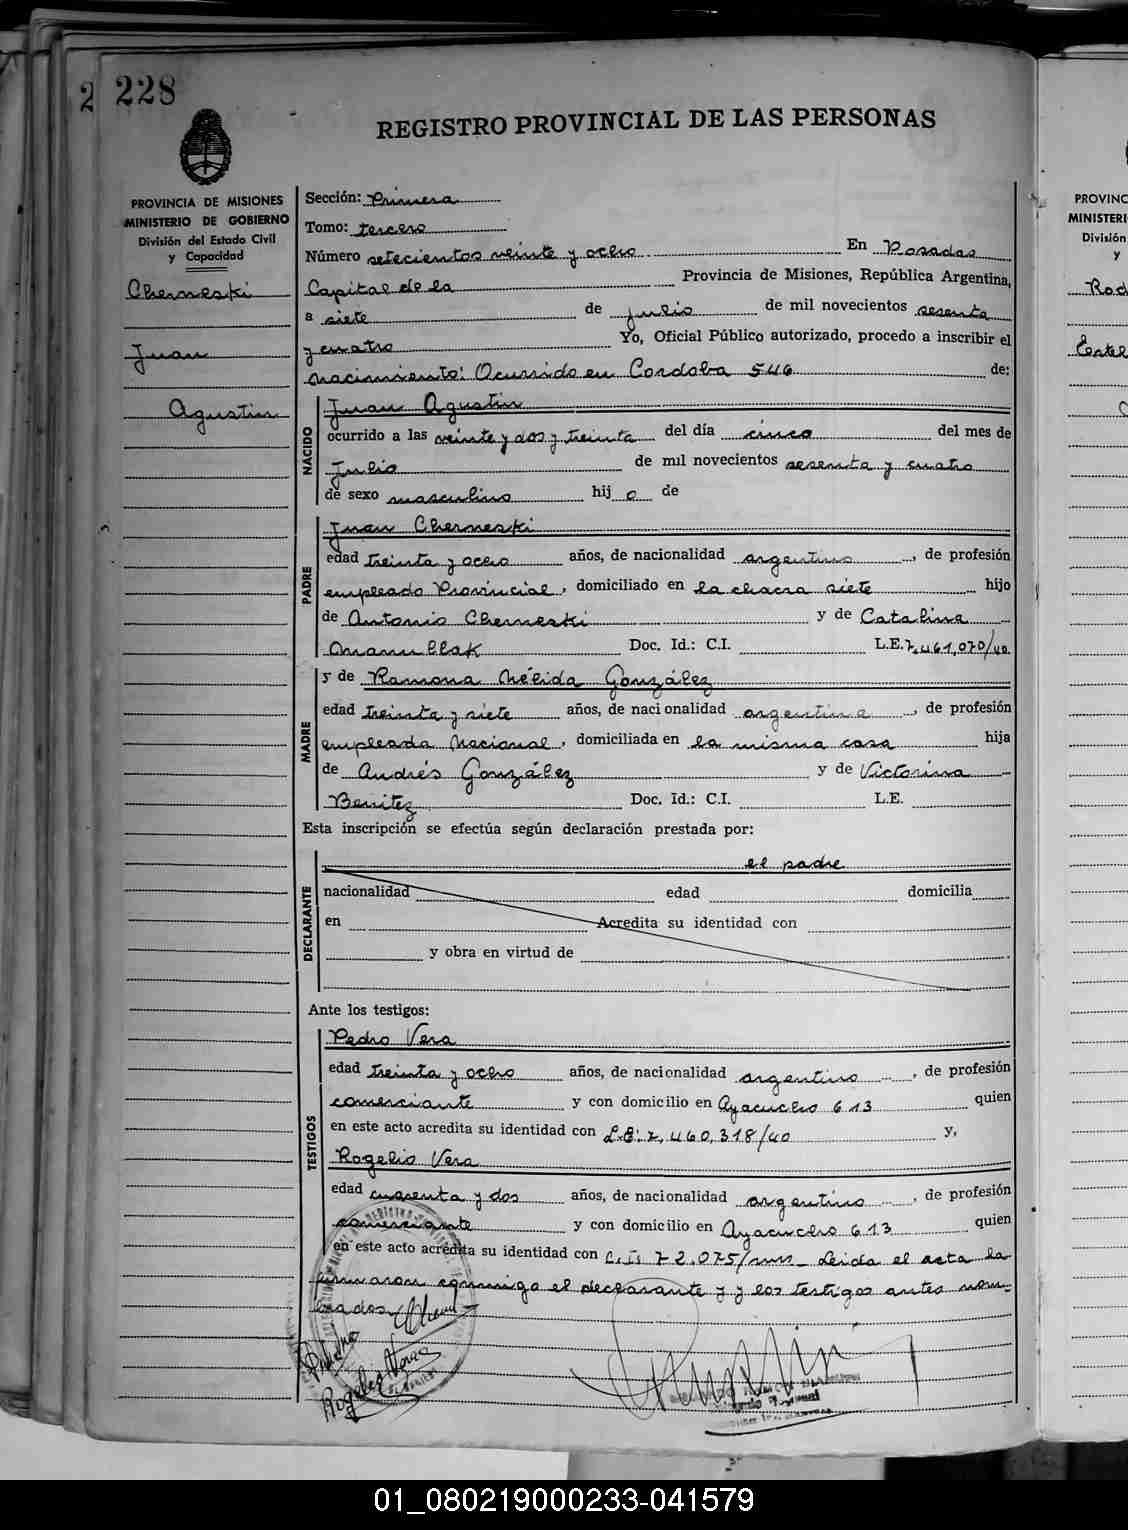 228
REGISTRO PROVINCIAL DE LAS PERSONAS
PROVINCIA DE MISIONES
MINISTERIO DE GOBIERNO
División del Estado Civil
y Capacidad
Cherneski
Juan
Agustin
Sección: Primera
Tomo: tercero
Número setecientos veinte y ocho En Posadas
Capital de la Provincia de Misiones, República Argentina,
a siete de julio de mil novecientos sesenta
y cuatro Yo, Oficial Público autorizado, procedo a inscribir el
nacimiento: Ocurrido en Cordoba 546 de:
NACIDO
Juan Agustin
ocurrido a las veinte y dos y treinta del día cinco del mes de
Julio de mil novecientos sesenta y cuatro
de sexo masculino hijo de
PADRE
Juan Cherneski
edad treinta y ocho años, de nacionalidad argentino, de profesión
empleado Provincial, domiciliado en la chacra siete hijo
de Antonio Cherneski y de Catalina
Doc. Id.: C.I. L.E. 7.461.070/40
MADRE
y de Ramona Nélida González
edad treinta y siete años, de nacionalidad argentina, de profesión
empleada Nacional, domiciliada en la misma casa hija
de Andrés González y de Victorina
Benitez Doc. Id.: C.I. L.E.
Esta inscripción se efectúa según declaración prestada por:
DECLARANTE
el padre
nacionalidad edad domicilia
en Acredita su identidad con
y obra en virtud de
Ante los testigos:
TESTIGOS
Pedro Vera
edad treinta y ocho años, de nacionalidad argentino, de profesión
comerciante y con domicilio en Ayacucho 613 quien
en este acto acredita su identidad con L.E: 7,460,318/40 y,
Rogelio Vera
edad cuarenta y dos años, de nacionalidad argentino, de profesión
comerciante y con domicilio en Ayacucho 613 quien
en este acto acredita su identidad con C.I: 72.075/mns_ Leida el acta la
firmaron conmigo el declarante y y los testigos antes nom-
brados
PROVINC
MINISTERI
División
y
Rod
Ester
01_080219000233-041579